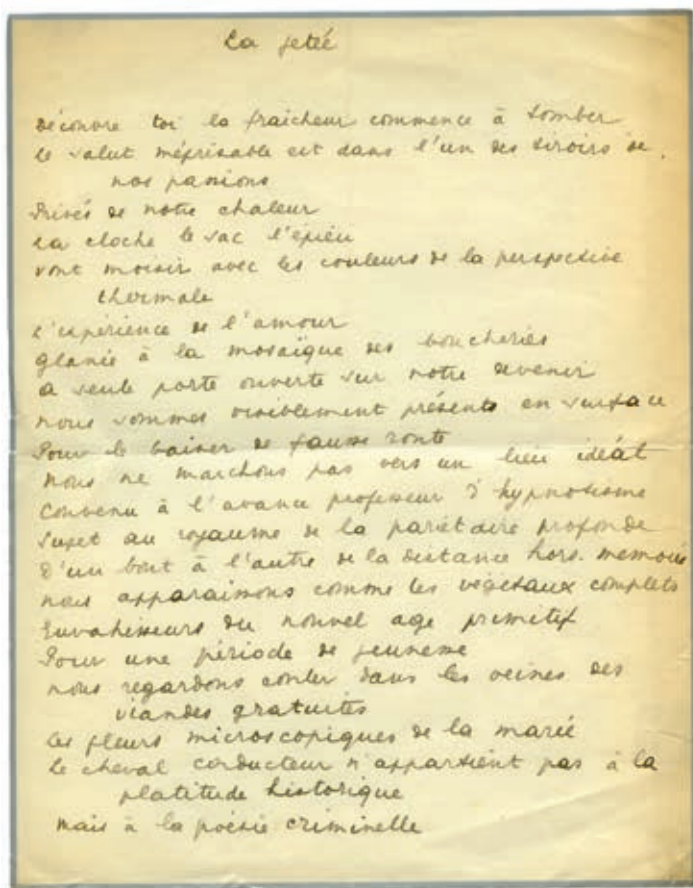 La jetée
découvre toi la fraîcheur commence à tomber
le salut méprisable est dans l'un des tiroirs de
nos passions
Privés de notre chaleur
La cloche le sac l'épieu
vont moisir avec les couleurs de la perspective
thermale
L'expérience de l'amour
glanée à la mosaïque des boucheries
a seule porte ouverte sur notre devenir
nous sommes visiblement présents en surface
Pour le baiser de fausse route
nous ne marchons pas vers un lieu idéal
convenu à l'avance professeur d'hypnotisme
sujet au royaume de la pariétaire profonde
D'un bout à l'autre de la distance hors mémoire
nous apparaissons comme les végétaux complets
Envahisseurs du nouvel age primitif
Pour une période de jeunesse
nous regardons couler dans les veines des
viandes gratuites
les fleurs microscopiques de la marée
le cheval conducteur n'appartient pas à la
platitude historique
mais à la poésie criminelle